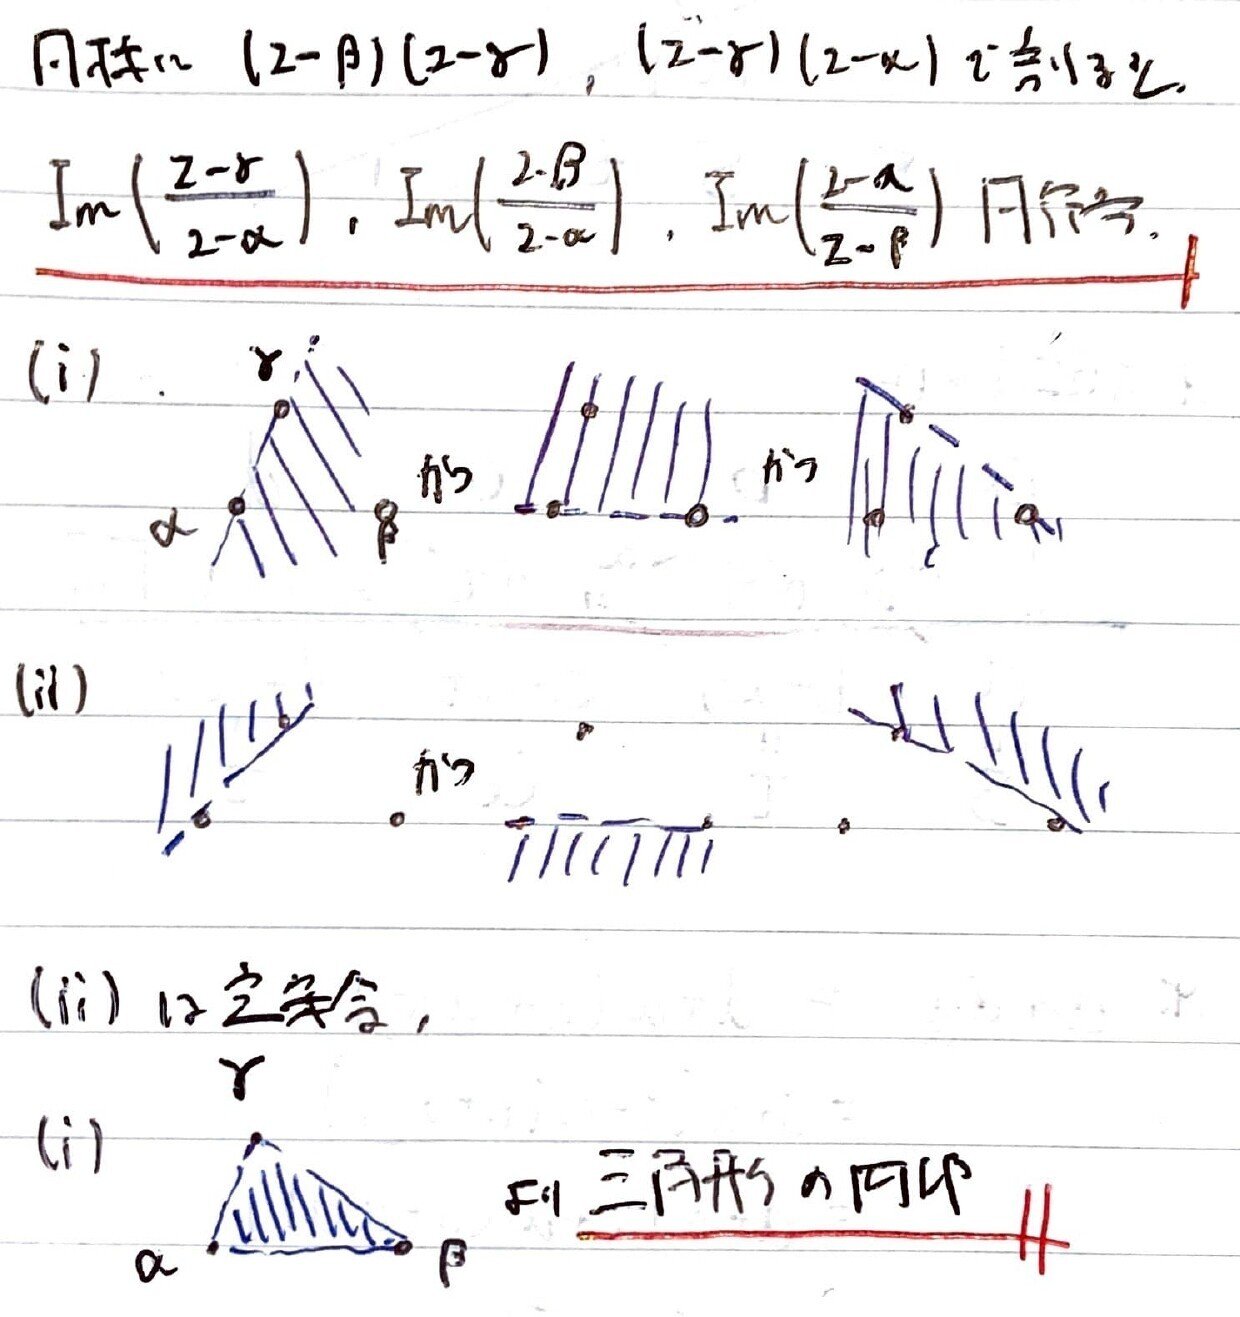 同様に (z-β)(z-γ), (z-γ)(z-α) で割ると.
Im((z-γ)/(z-α)), Im((z-β)/(z-α)), Im((z-α)/(z-β)) 同符号.
(i) γ α β かつ かつ
(ii) かつ
(ii) は空集合,
γ
(i) より 三角形の内部
α β